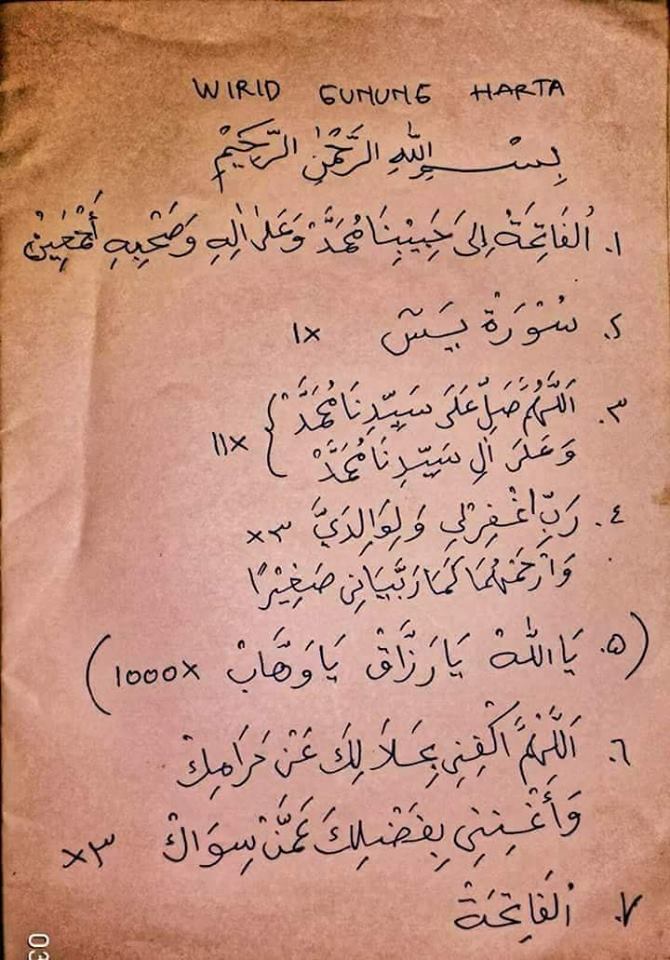 WIRID GUNUNG HARTA
بِسْمِ اللهِ الرَّحْمٰنِ الرَّحِيْمِ
١. اَلْفَاتِحَةُ اِلَى حَبِيْبِنَا مُحَمَّدْ وَعَلَى اٰلِهِ وَصَحْبِهِ أَجْمَعِيْنْ
٢. سُوْرَةْ يٓسٓ 1x
٣. اَللّٰهُمَّ صَلِّ عَلَى سَيِّدِنَا مُحَمَّدْ
وَعَلَى اٰلِ سَيِّدِنَا مُحَمَّدْ } 11x
٤. رَبِّ اغْفِرْلِي وَلِوَالِدَيَّ ٣x
وَارْحَمْهُمَا كَمَا رَبَّيَانِي صَغِيْرًا
(٥. يَا اَللهْ يَا رَزَّاقْ يَا وَهَّابْ 1000x)
٦. اَللّٰهُمَّ اكْفِنِي بِحَلَالِكَ عَنْ حَرَامِكْ
وَأَغْنِنِي بِفَضْلِكَ عَمَّنْ سِوَاكْ ٣x
٧. اَلْفَاتِحَةْ
03